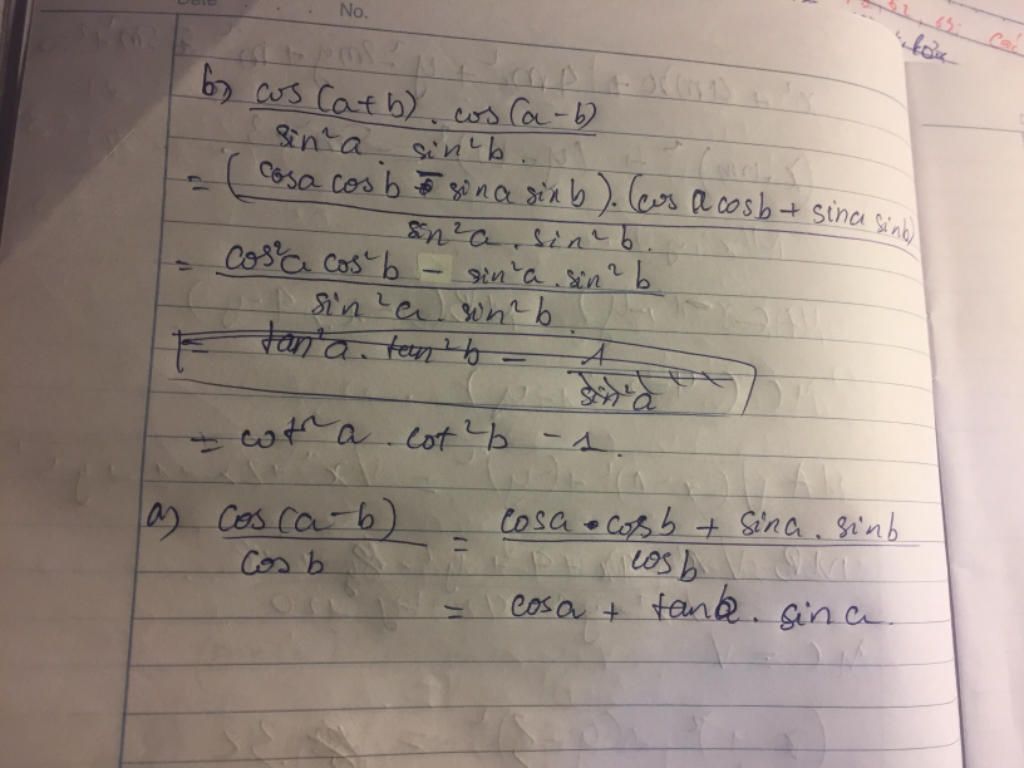 No.
b) cos(a+b) . cos(a-b)
sin²a . sin²b .
= (cosa cosb - sina sinb) . (cos a cosb + sina sinb)
sin²a . sin²b .
= cos²a cos²b - sin²a . sin²b
sin²a . sin²b .
= tan²a . tan²b - 1
sin²a
= cot²a . cot²b - 1 .
a) cos(a-b) = cosa . cosb + sina . sinb
cosb cosb
= cosa + tanb . sina .